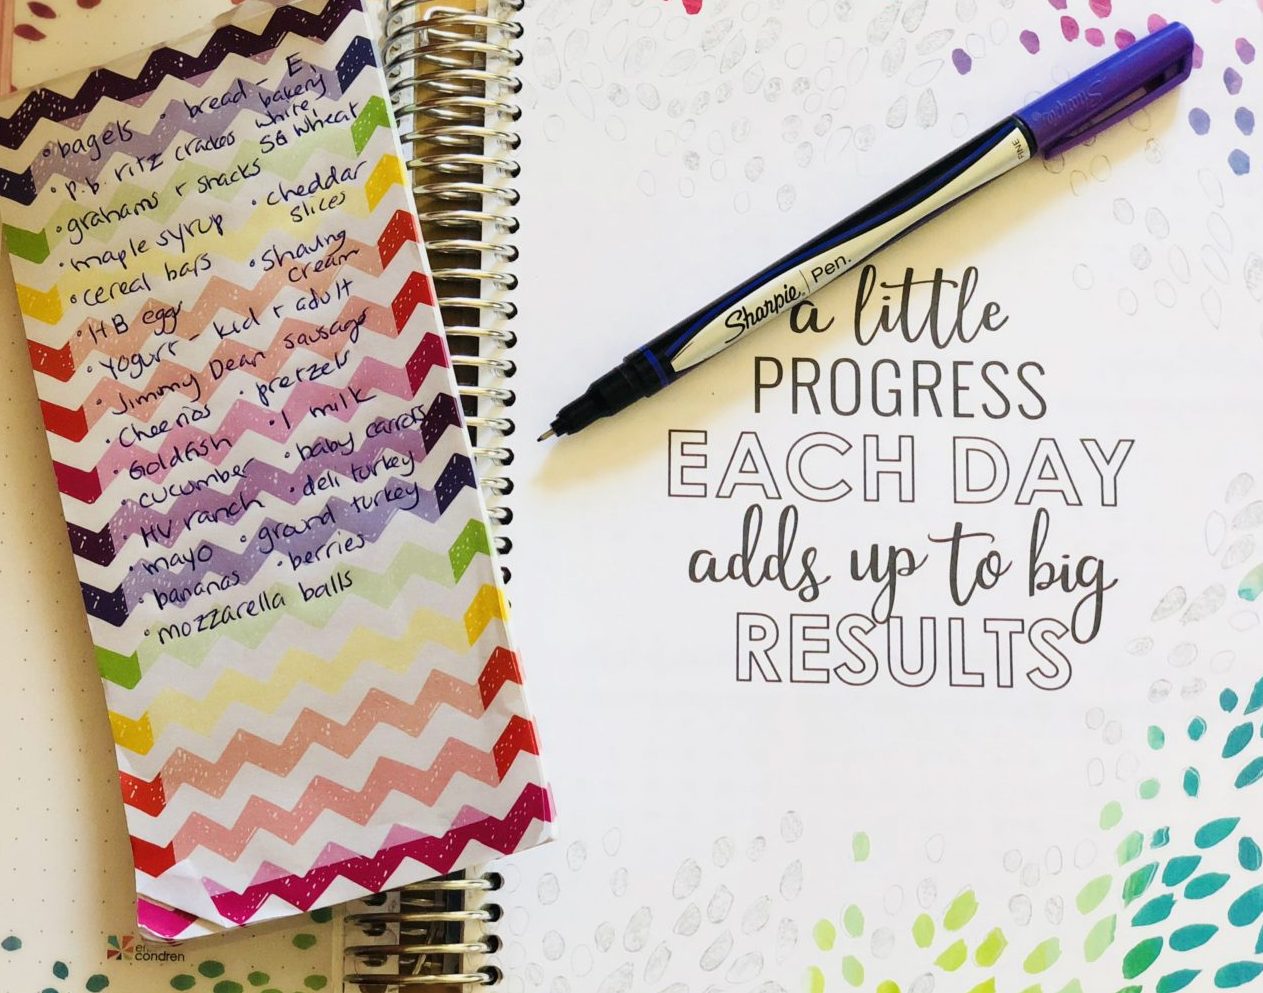 • bagels • bread - E,
bakery
white,
• P.B. ritz crackes SG wheat
• grahams + snacks
• maple syrup • cheddar
slices
• cereal bars • Shaving
cream
• HB eggs
• Yogurt - kid + adult
• Jimmy Dean sausage
• Cheerios • pretzels
• Goldfish • 1 milk
• cucumber • baby carrots
• HV ranch • deli turkey
• mayo • ground turkey
• bananas • berries
• mozzarella balls
erin
condren
Sharpie
FINE
Sharpie. Pen.
a little
PROGRESS
EACH DAY
adds up to big
RESULTS